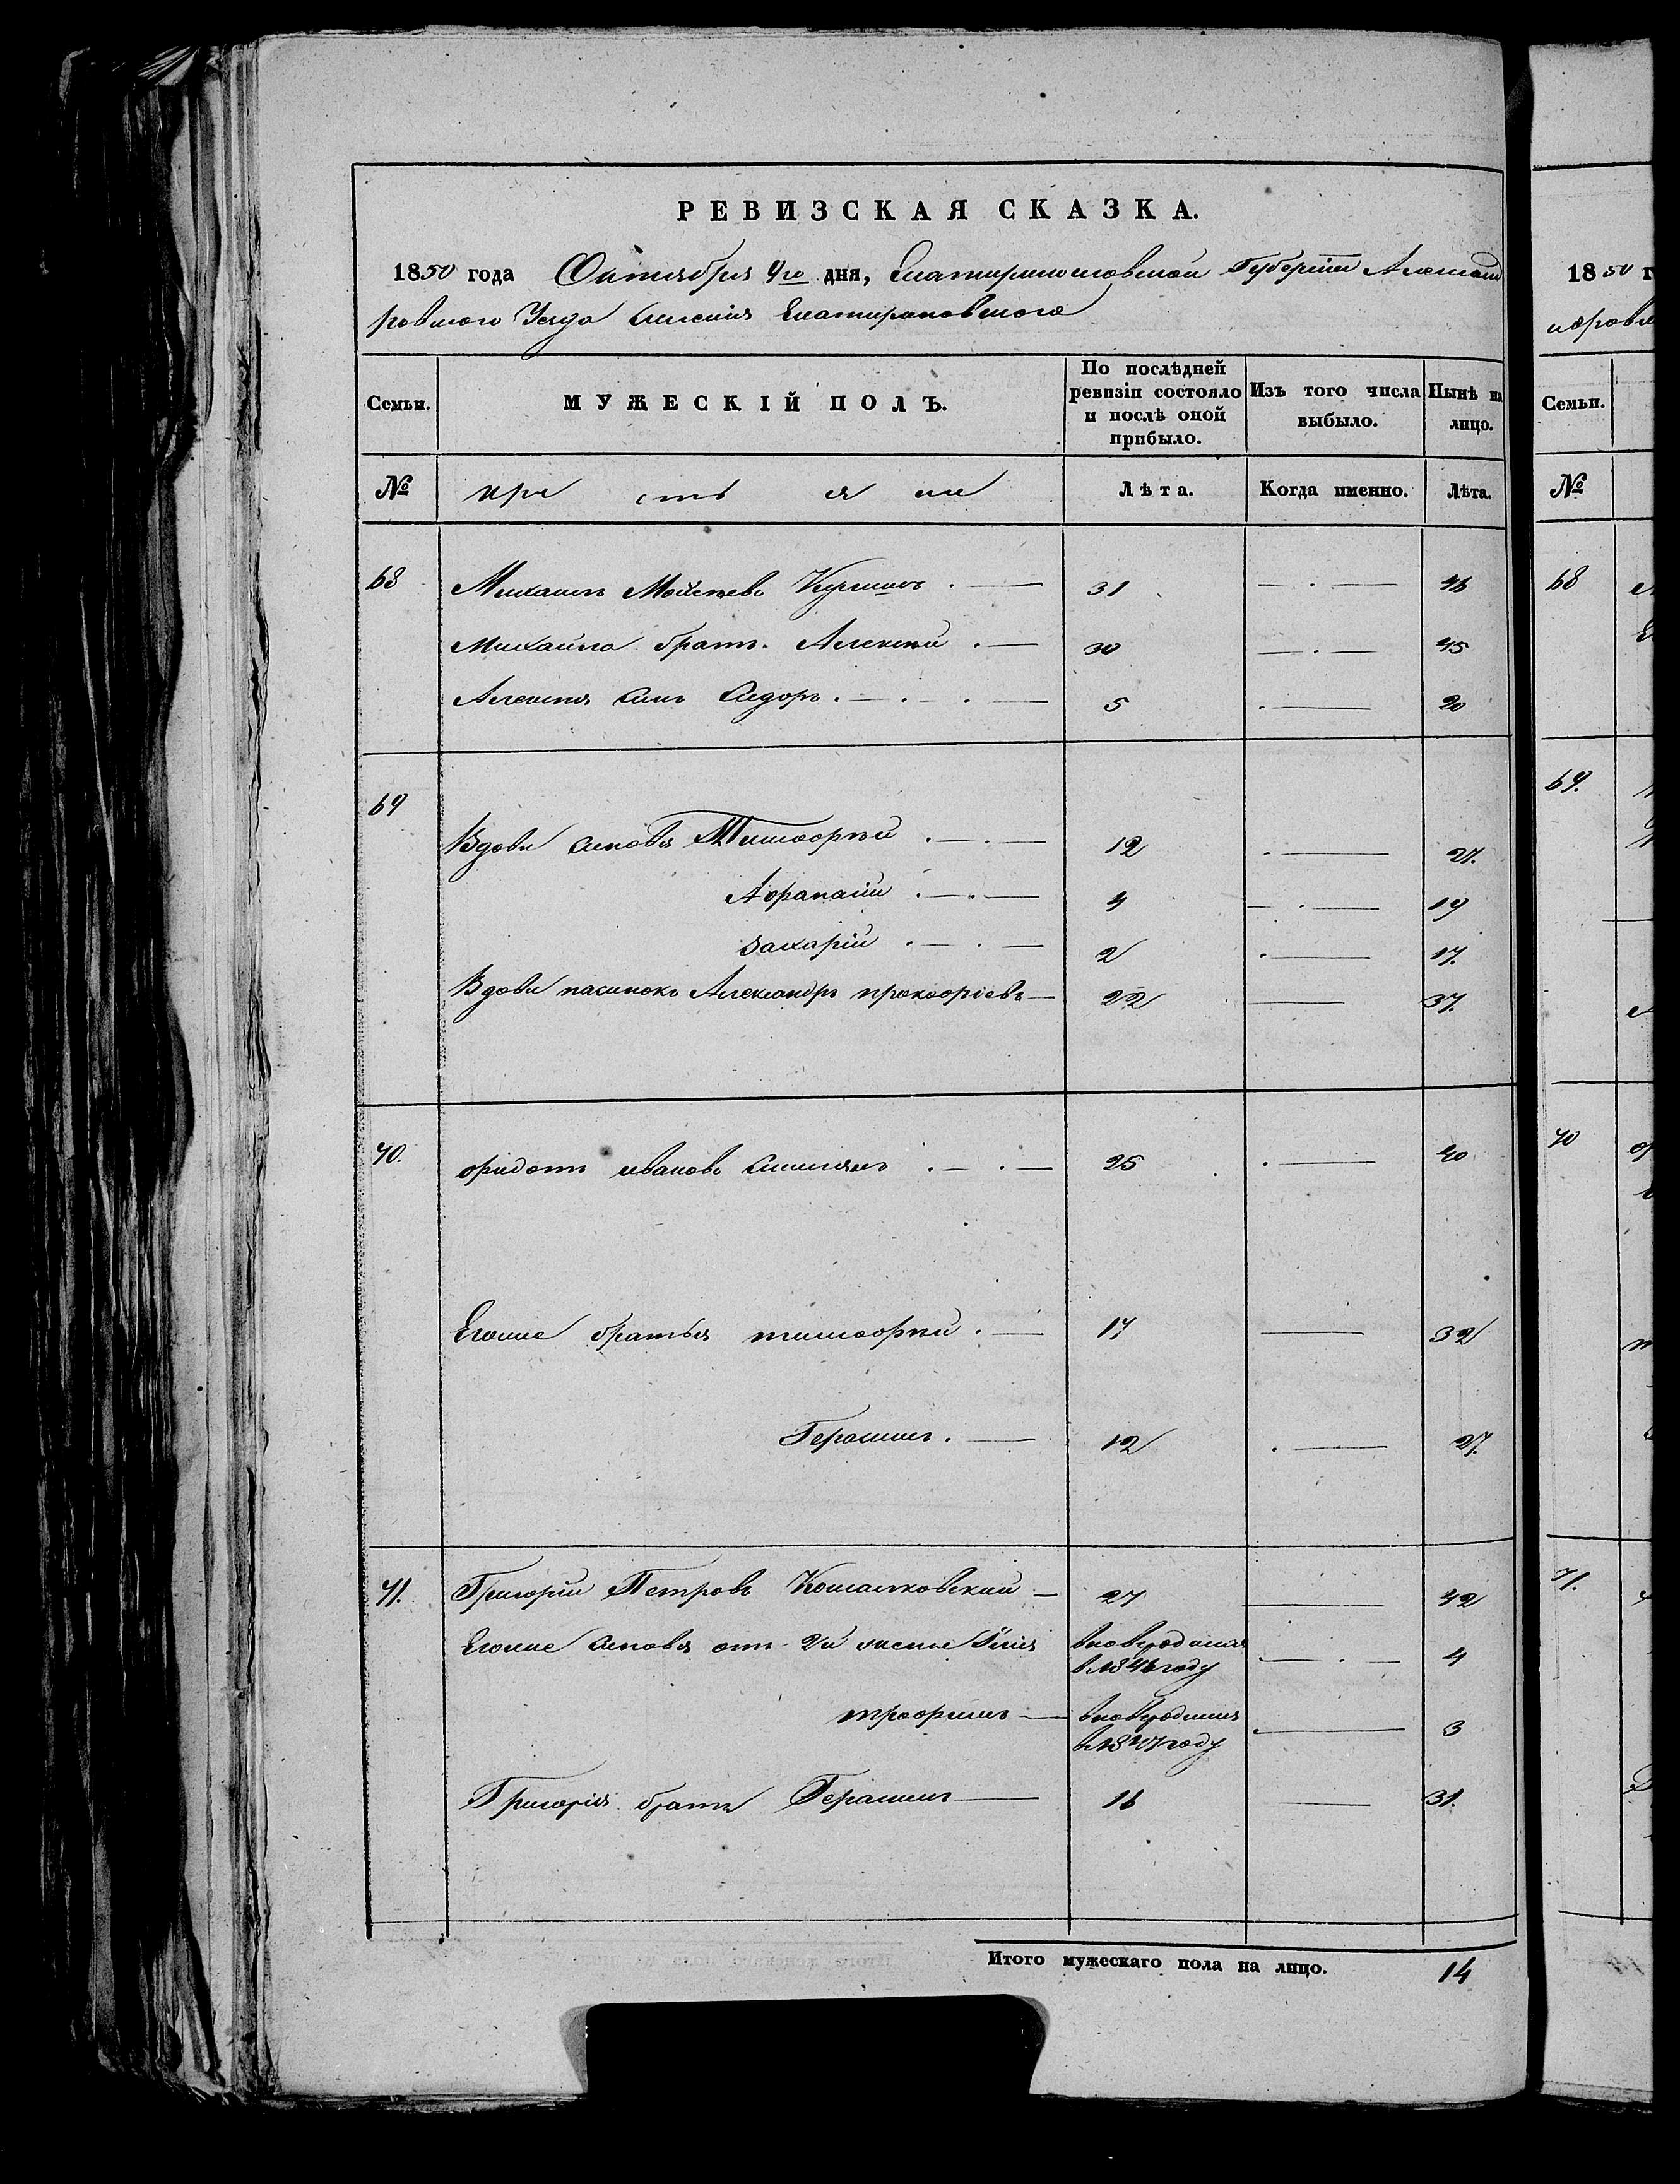 РЕВИЗСКАЯ СКАЗКА.
1850 года Октября 4го дня, Екатеринославской Губернии Александ
ровского Уезда Селения Екатериновского
Семьи. МУЖЕСКІЙ ПОЛЪ. По послѣдней ревизіи состояло и послѣ оной прибыло. Изъ того числа выбыло. Нынѣ на лицо.
№ кре сть я не Лѣта. Когда именно. Лѣта.
68 Михаилъ Мойсѣевъ 31 46
Михайла братъ Алексѣй 30 45
Алексѣя сынъ Сидоръ 5 20
69
Вдовы сыновья Тимофѣй 12 27.
Афанасій 4 19
Захарій 2 17.
Вдовы пасынокъ Александръ прокофіевъ 22 37.
70. фидотъ ивановъ 25 40
Егоже братья тимофѣй 17 32
Герасимъ 12 27.
71. Григорій Петровъ 27 42
Егоже сыновья отъ 2й 4
вновьродился
в 1846 году
трофимъ вновьродился 3
в 1847 году
Григорія братъ Герасимъ 16 31.
Итого мужескаго пола на лицо. 14
1850 г
Семьи.
№
68
69.
70
71.